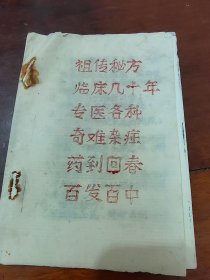 祖传秘方
临床几十年
专医各种
奇难杂症
药到回春
百发百中